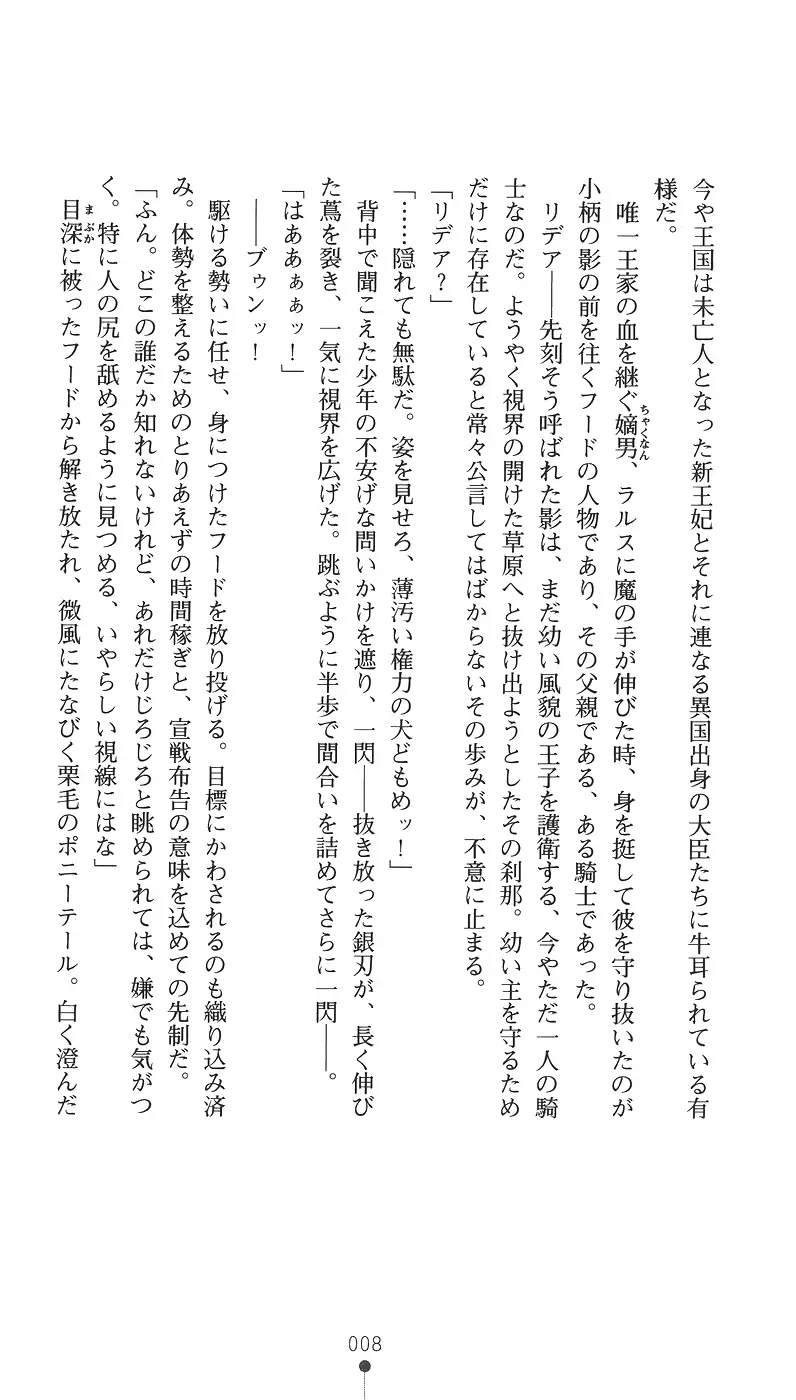 今や王国は未亡人となった新王妃とそれに連なる異国出身の大臣たちに牛耳られている有
様だ。
　唯一王家の血を継ぐ嫡男、ラルスに魔の手が伸びた時、身を挺して彼を守り抜いたのが
ちゃくなん
小柄の影の前を往くフードの人物であり、その父親である、ある騎士であった。
　リデア――先刻そう呼ばれた影は、まだ幼い風貌の王子を護衛する、今やただ一人の騎
士なのだ。ようやく視界の開けた草原へと抜け出ようとしたその刹那。幼い主を守るため
だけに存在していると常々公言してはばからないその歩みが、不意に止まる。
「リデア？」
「……隠れても無駄だ。姿を見せろ、薄汚い権力の犬どもめッ！」
　背中で聞こえた少年の不安げな問いかけを遮り、一閃――抜き放った銀刃が、長く伸び
た蔦を裂き、一気に視界を広げた。跳ぶように半歩で間合いを詰めてさらに一閃――。
「はああぁぁッ！」
　――ブゥンッ！
　駆ける勢いに任せ、身につけたフードを放り投げる。目標にかわされるのも織り込み済
み。体勢を整えるためのとりあえずの時間稼ぎと、宣戦布告の意味を込めての先制だ。
「ふん。どこの誰だか知れないけれど、あれだけじろじろと眺められては、嫌でも気がつ
く。特に人の尻を舐めるように見つめる、いやらしい視線にはな」
　目深に被ったフードから解き放たれ、微風にたなびく栗毛のポニーテール。白く澄んだ
まぶか
008